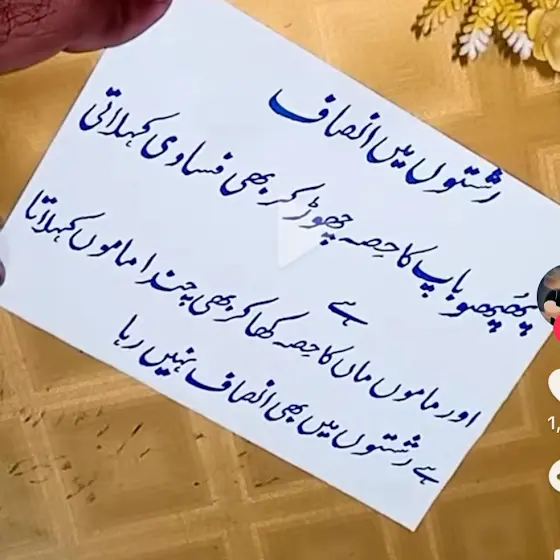 رشتوں میں انصاف
پُھپھو باپ کا حِصہ چھوڑ کر بھی فسادی کہلاتی
ہے
اور ماموں ماں کا حِصہ کھا کر بھی چندا ماموں کہلاتا
ہے رشتوں میں بھی انصاف نہیں رہا
1,